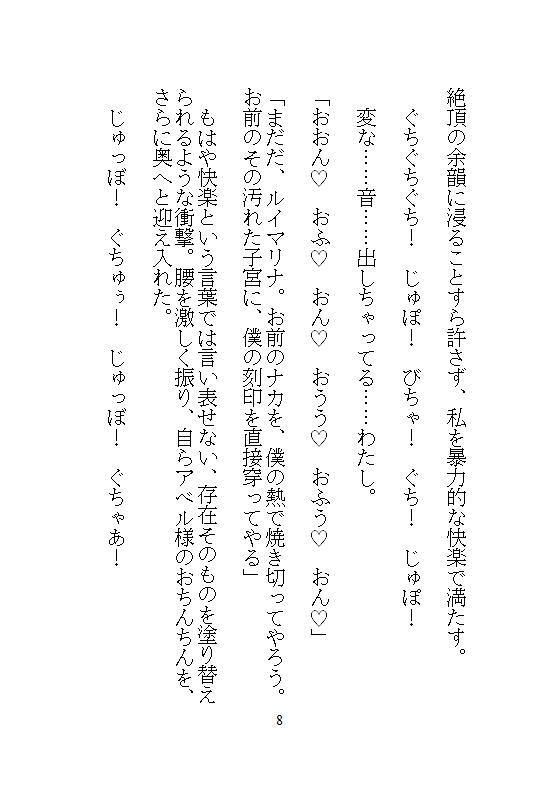 絶頂の余韻に浸ることすら許さず、私を暴力的な快楽で満たす。
ぐちぐちぐち！　じゅぽ！　びちゃ！　ぐち！　じゅぽ！
変な……音……出しちゃってる……わたし。
「おおん♡　おふ♡　おん♡　おうう♡　おふう♡　おん♡」
「まだだ、ルイマリナ。お前のナカを、僕の熱で焼き切ってやろう。
お前のその汚れた子宮に、僕の刻印を直接穿ってやる」
もはや快楽という言葉では言い表せない、存在そのものを塗り替え
られるような衝撃。腰を激しく振り、自らアベル様のおちんちんを、
さらに奥へと迎え入れた。
じゅっぼ！　ぐちゅぅ！　じゅっぼ！　ぐちゃあ！
8